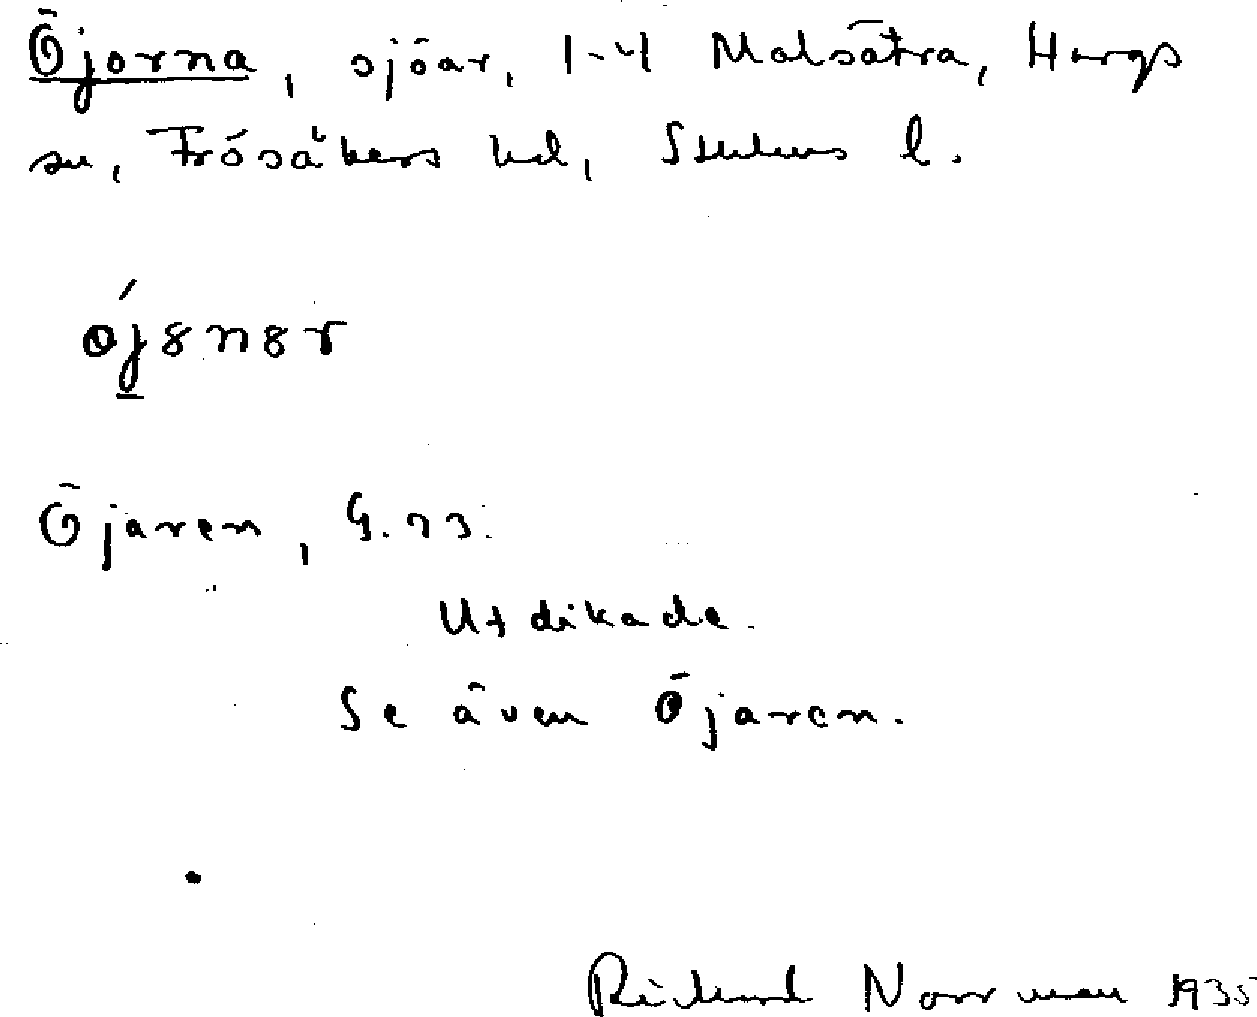 Öjorna, sjöar, 1-4 Malsätra, Hargs
sn, Frösåkers hd, Sthlms l.
öjɜnɜr
Öjaren, G.
Utdikade.
Se även Öjaren.
Rickard Norrman 1935